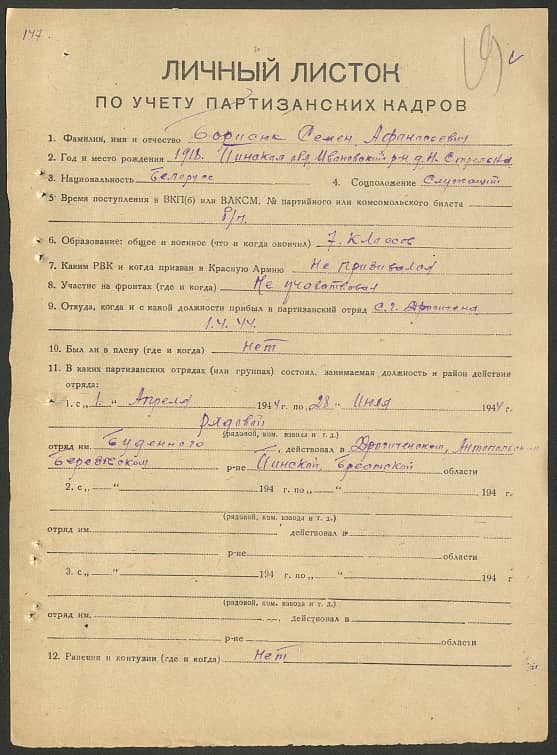 147.
ЛИЧНЫЙ ЛИСТОК
ПО УЧЕТУ ПАРТИЗАНСКИХ КАДРОВ
1. Фамилия, имя и отчество Борисик Семен Афанасьевич
2. Год и место рождения 1918. Пинская обл. Ивановский р-н д.
3. Национальность Белорус 4. Соцположение Служащий
5. Время поступления в ВКП(б) или ВЛКСМ, № партийного или комсомольского билета
б/п.
6. Образование: общее и военное (что и когда окончил) 7 классов
7. Каким РВК и когда призван в Красную Армию Не призивался
8. Участие на фронтах (где и когда) Не участвовал
9. Откуда, когда и с какой должности прибыл в партизанский отряд с г. Дрогичена
1.4.44.
10. Был ли в плену (где и когда) Нет
11. В каких партизанских отрядах (или группах) состоял, занимаемая должность и район действия
отряда:
1. с „1.“ Апреля 1944 г. по „28“ Июля 1944 г.
рядовой
(рядовой, ком. взвода и т. д.)
отряд им. Буденного, действовал в Дрогиченском, Антопольском
Березовском р-не Пинской, Брестской области
2. с „ “ 194 г. по „ “ 194 г.
(рядовой, ком. взвода и т. д.)
отряд им. действовал в
р-не области
3. с „ “ 194 г. по „ “ 194 г
(рядовой, ком. взвода и т. д.)
отряд им. , действовал в
р-не области
12. Ранения и контузии (где и когда) Нет